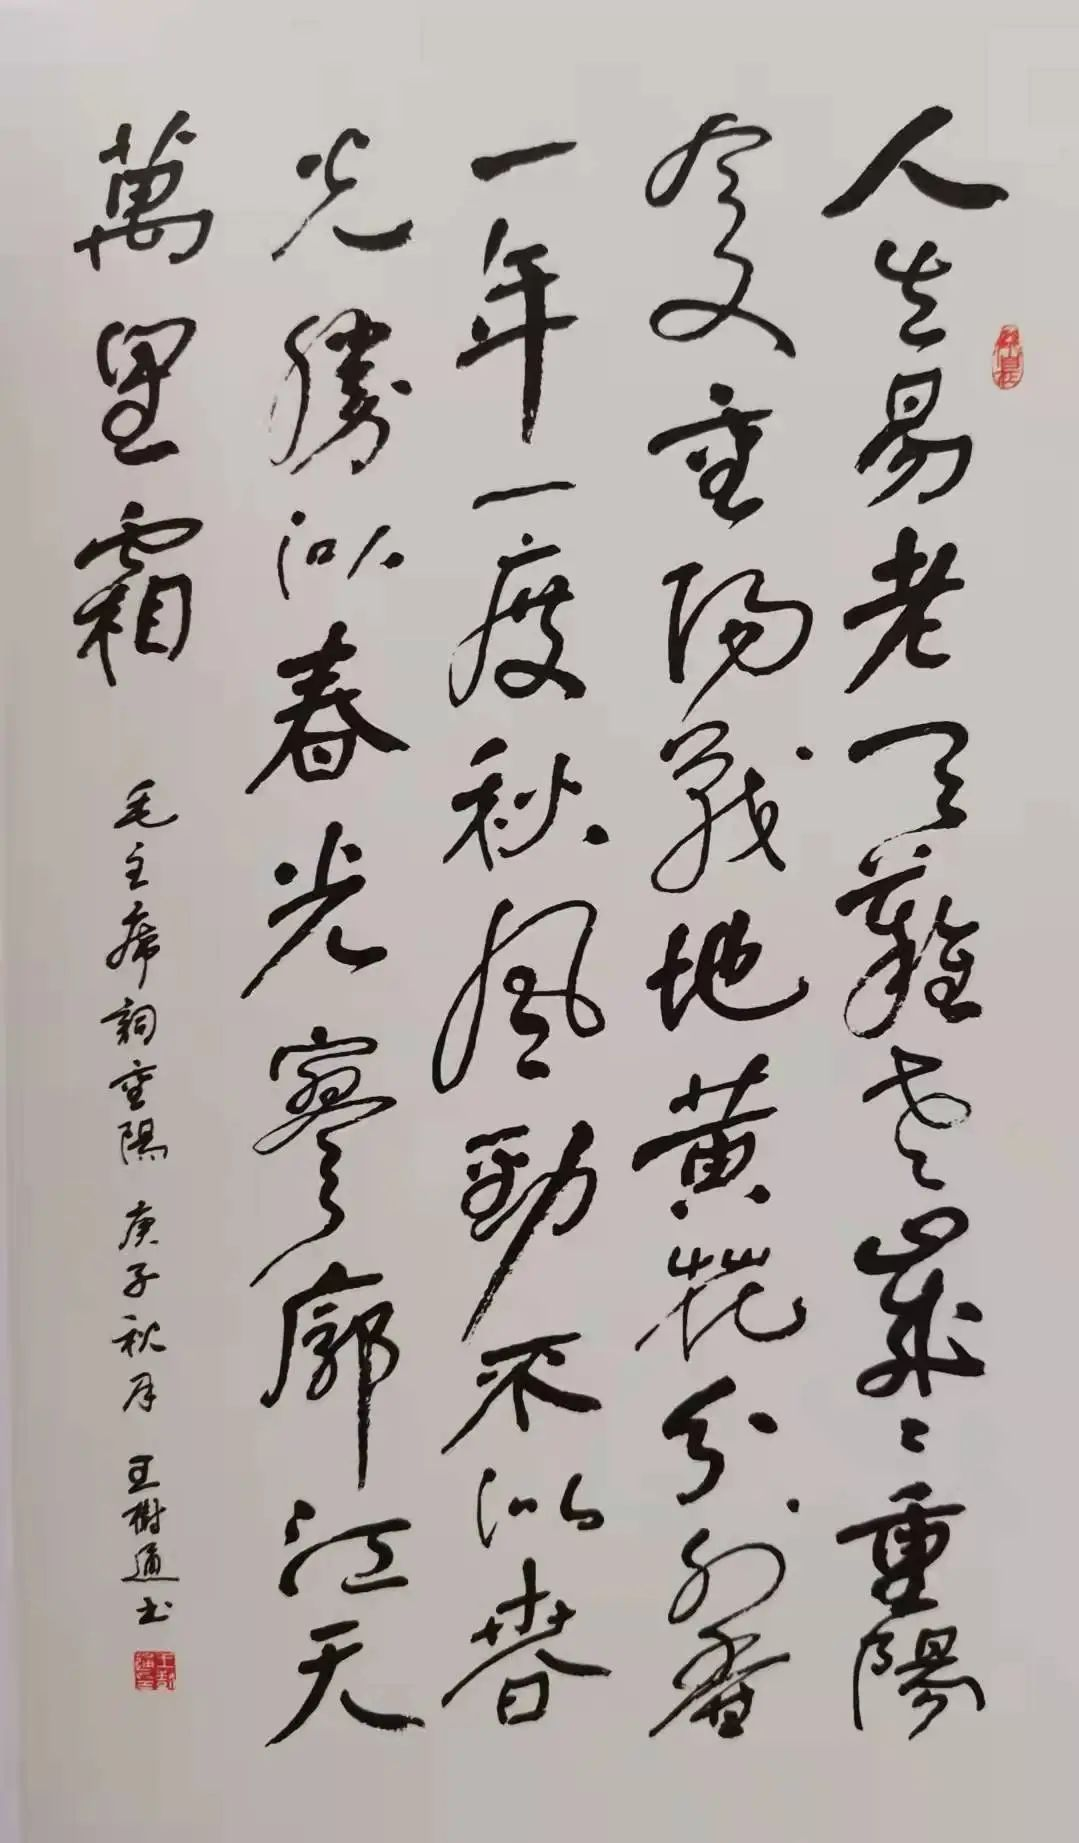 人生易老天難老歲々重陽
今又重陽戰地黃花分外香
一年一度秋風勁不似春
光勝似春光寥廓江天
萬里霜
毛主席詞重陽 庚子秋月 王樹通书